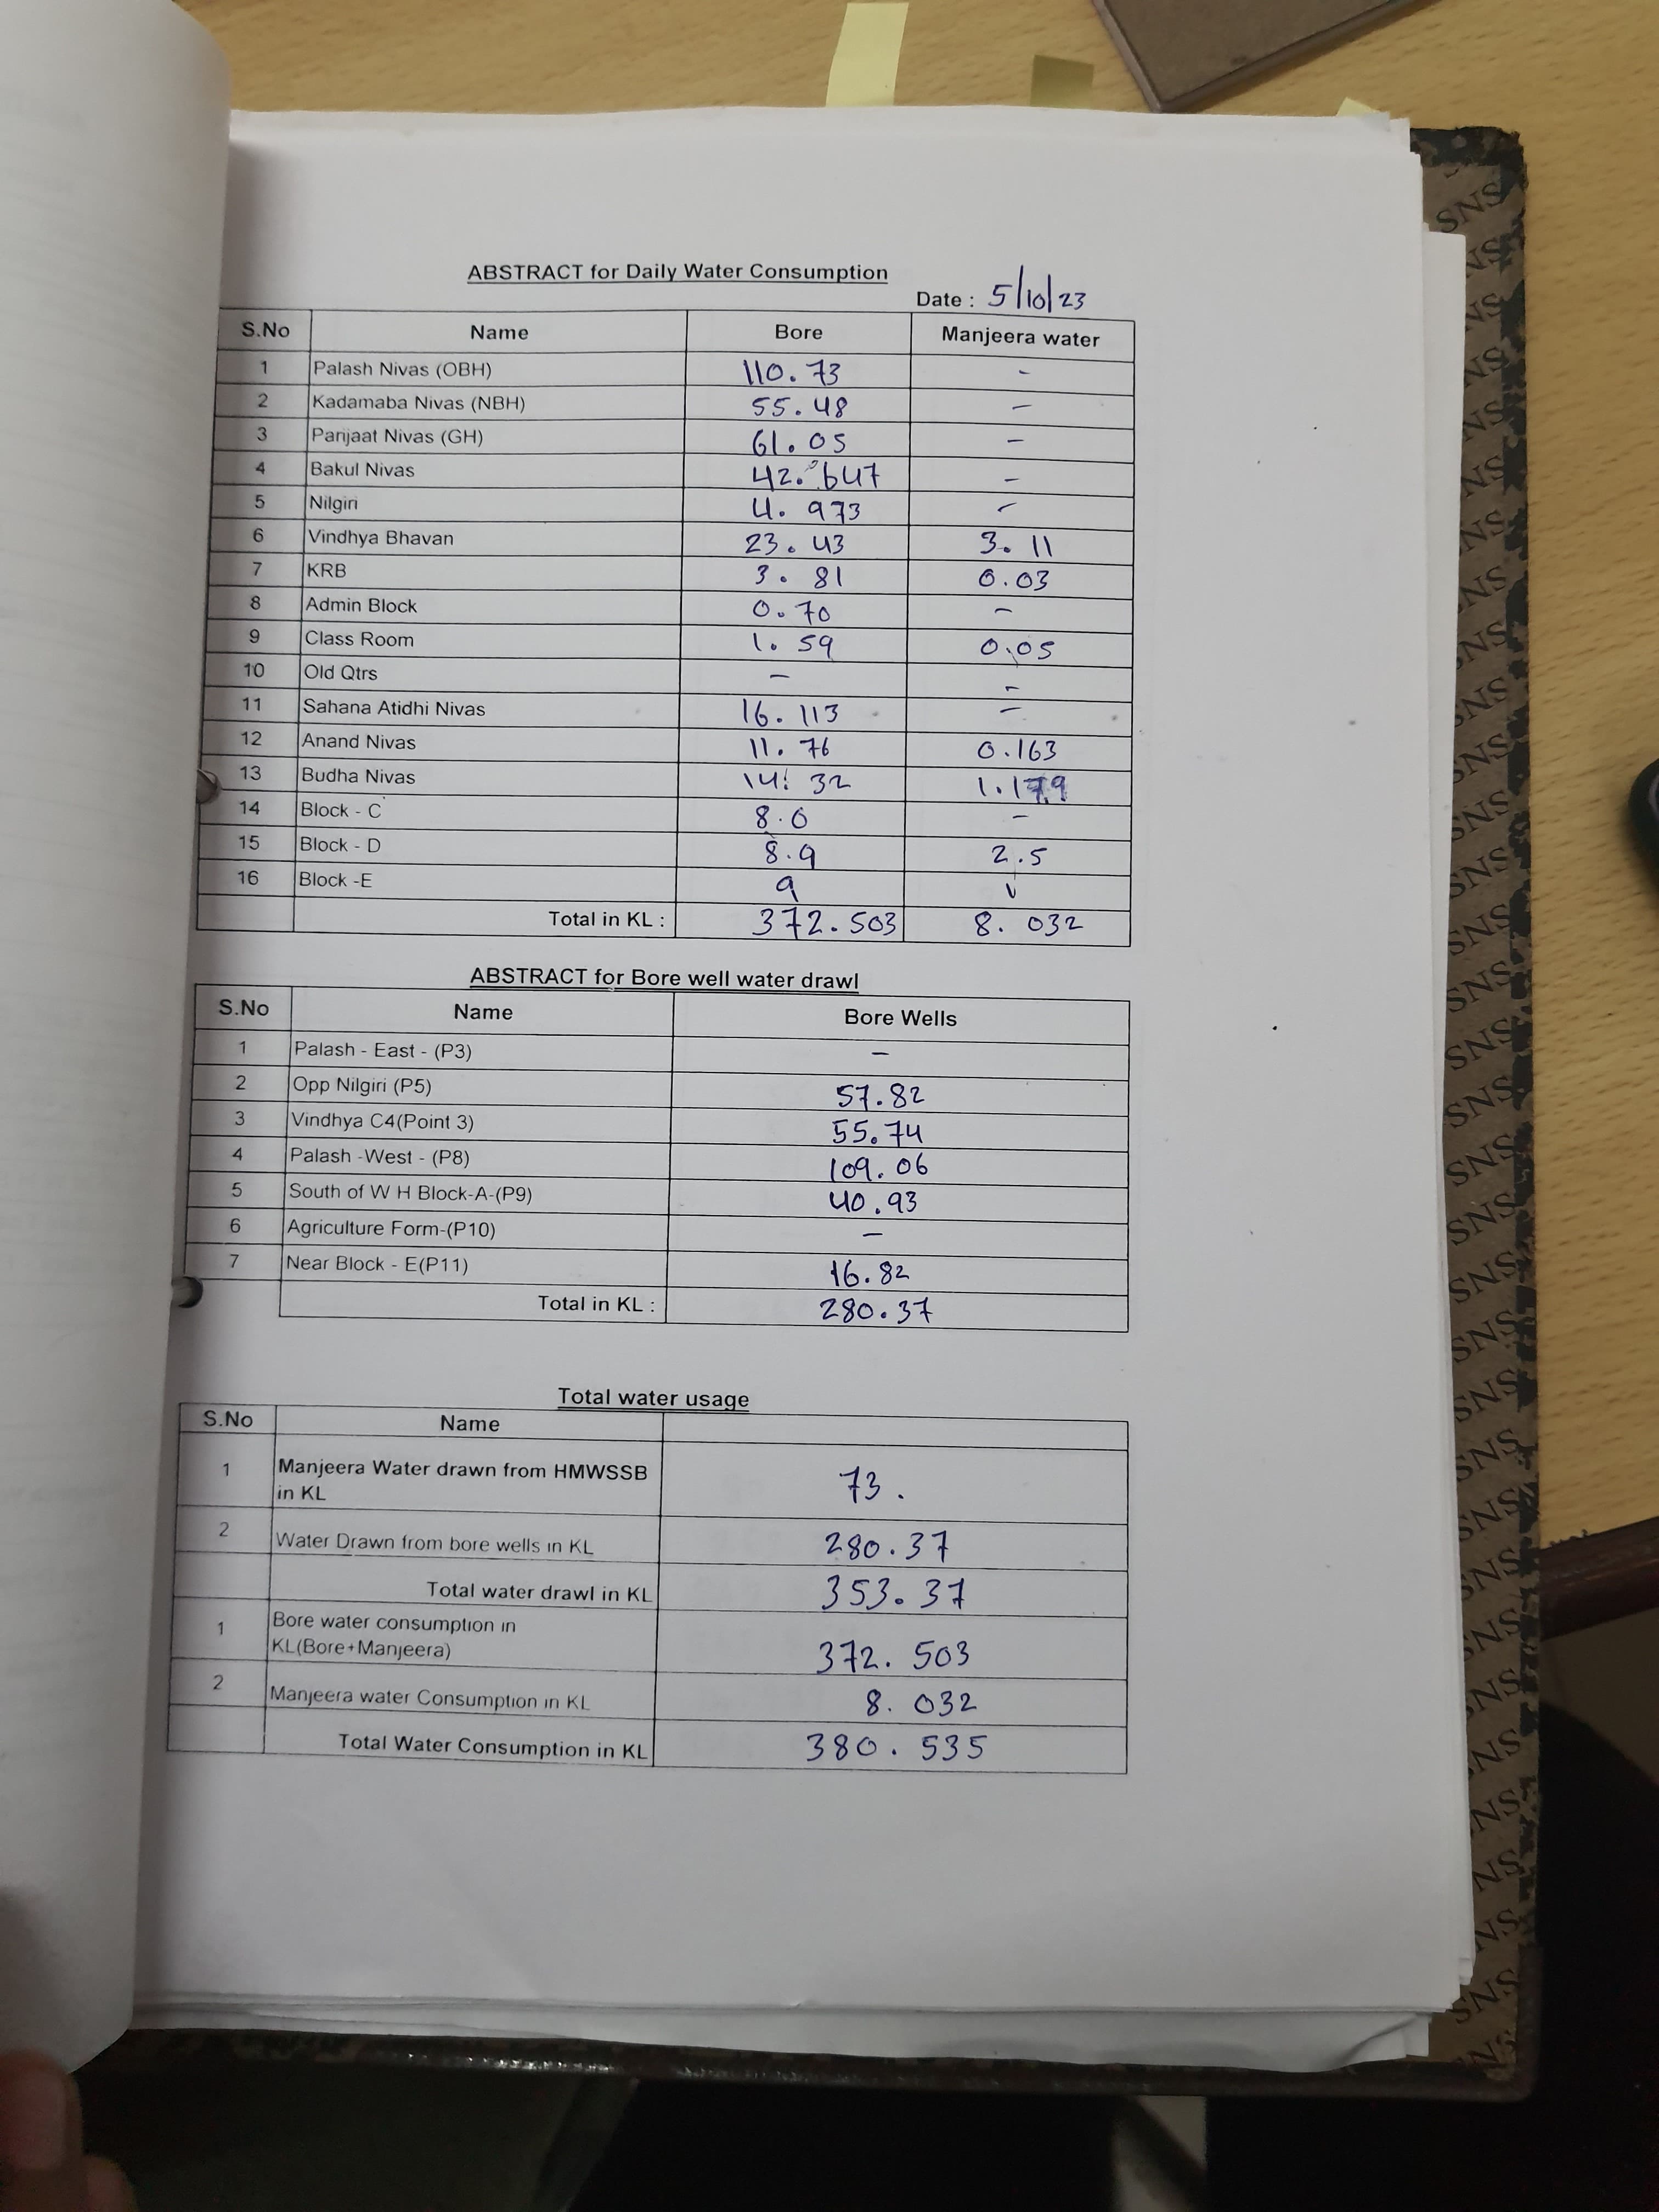 ABSTRACT for Daily Water Consumption
Date : 5/10/23
S.No Name Bore Manjeera water
1 Palash Nivas (OBH) 110.73 -
2 Kadamaba Nivas (NBH) 55.48 -
3 Parijaat Nivas (GH) 61.05 -
4 Bakul Nivas 42.647 -
5 Nilgiri 4.973 -
6 Vindhya Bhavan 23.43 3.11
7 KRB 3.81 0.03
8 Admin Block 0.70 -
9 Class Room 1.59 0.05
10 Old Qtrs - -
11 Sahana Atidhi Nivas 16.113 -
12 Anand Nivas 11.76 0.163
13 Budha Nivas 14.32
14 Block - C 8.0 -
15 Block - D 8.9 2.5
16 Block -E 9 1
Total in KL : 372.503 8.032
ABSTRACT for Bore well water drawl
S.No Name Bore Wells
1 Palash - East - (P3) -
2 Opp Nilgiri (P5) 57.82
3 Vindhya C4(Point 3) 55.74
4 Palash -West - (P8) 109.06
5 South of W H Block-A-(P9) 40.93
6 Agriculture Form-(P10) -
7 Near Block - E(P11) 16.82
Total in KL : 280.37
Total water usage
S.No Name
1 Manjeera Water drawn from HMWSSB
in KL 73.
2 Water Drawn from bore wells in KL 280.37
Total water drawl in KL 353.37
1 Bore water consumption in
KL(Bore+Manjeera) 372.503
2 Manjeera water Consumption in KL 8.032
Total Water Consumption in KL 380.535
SNS